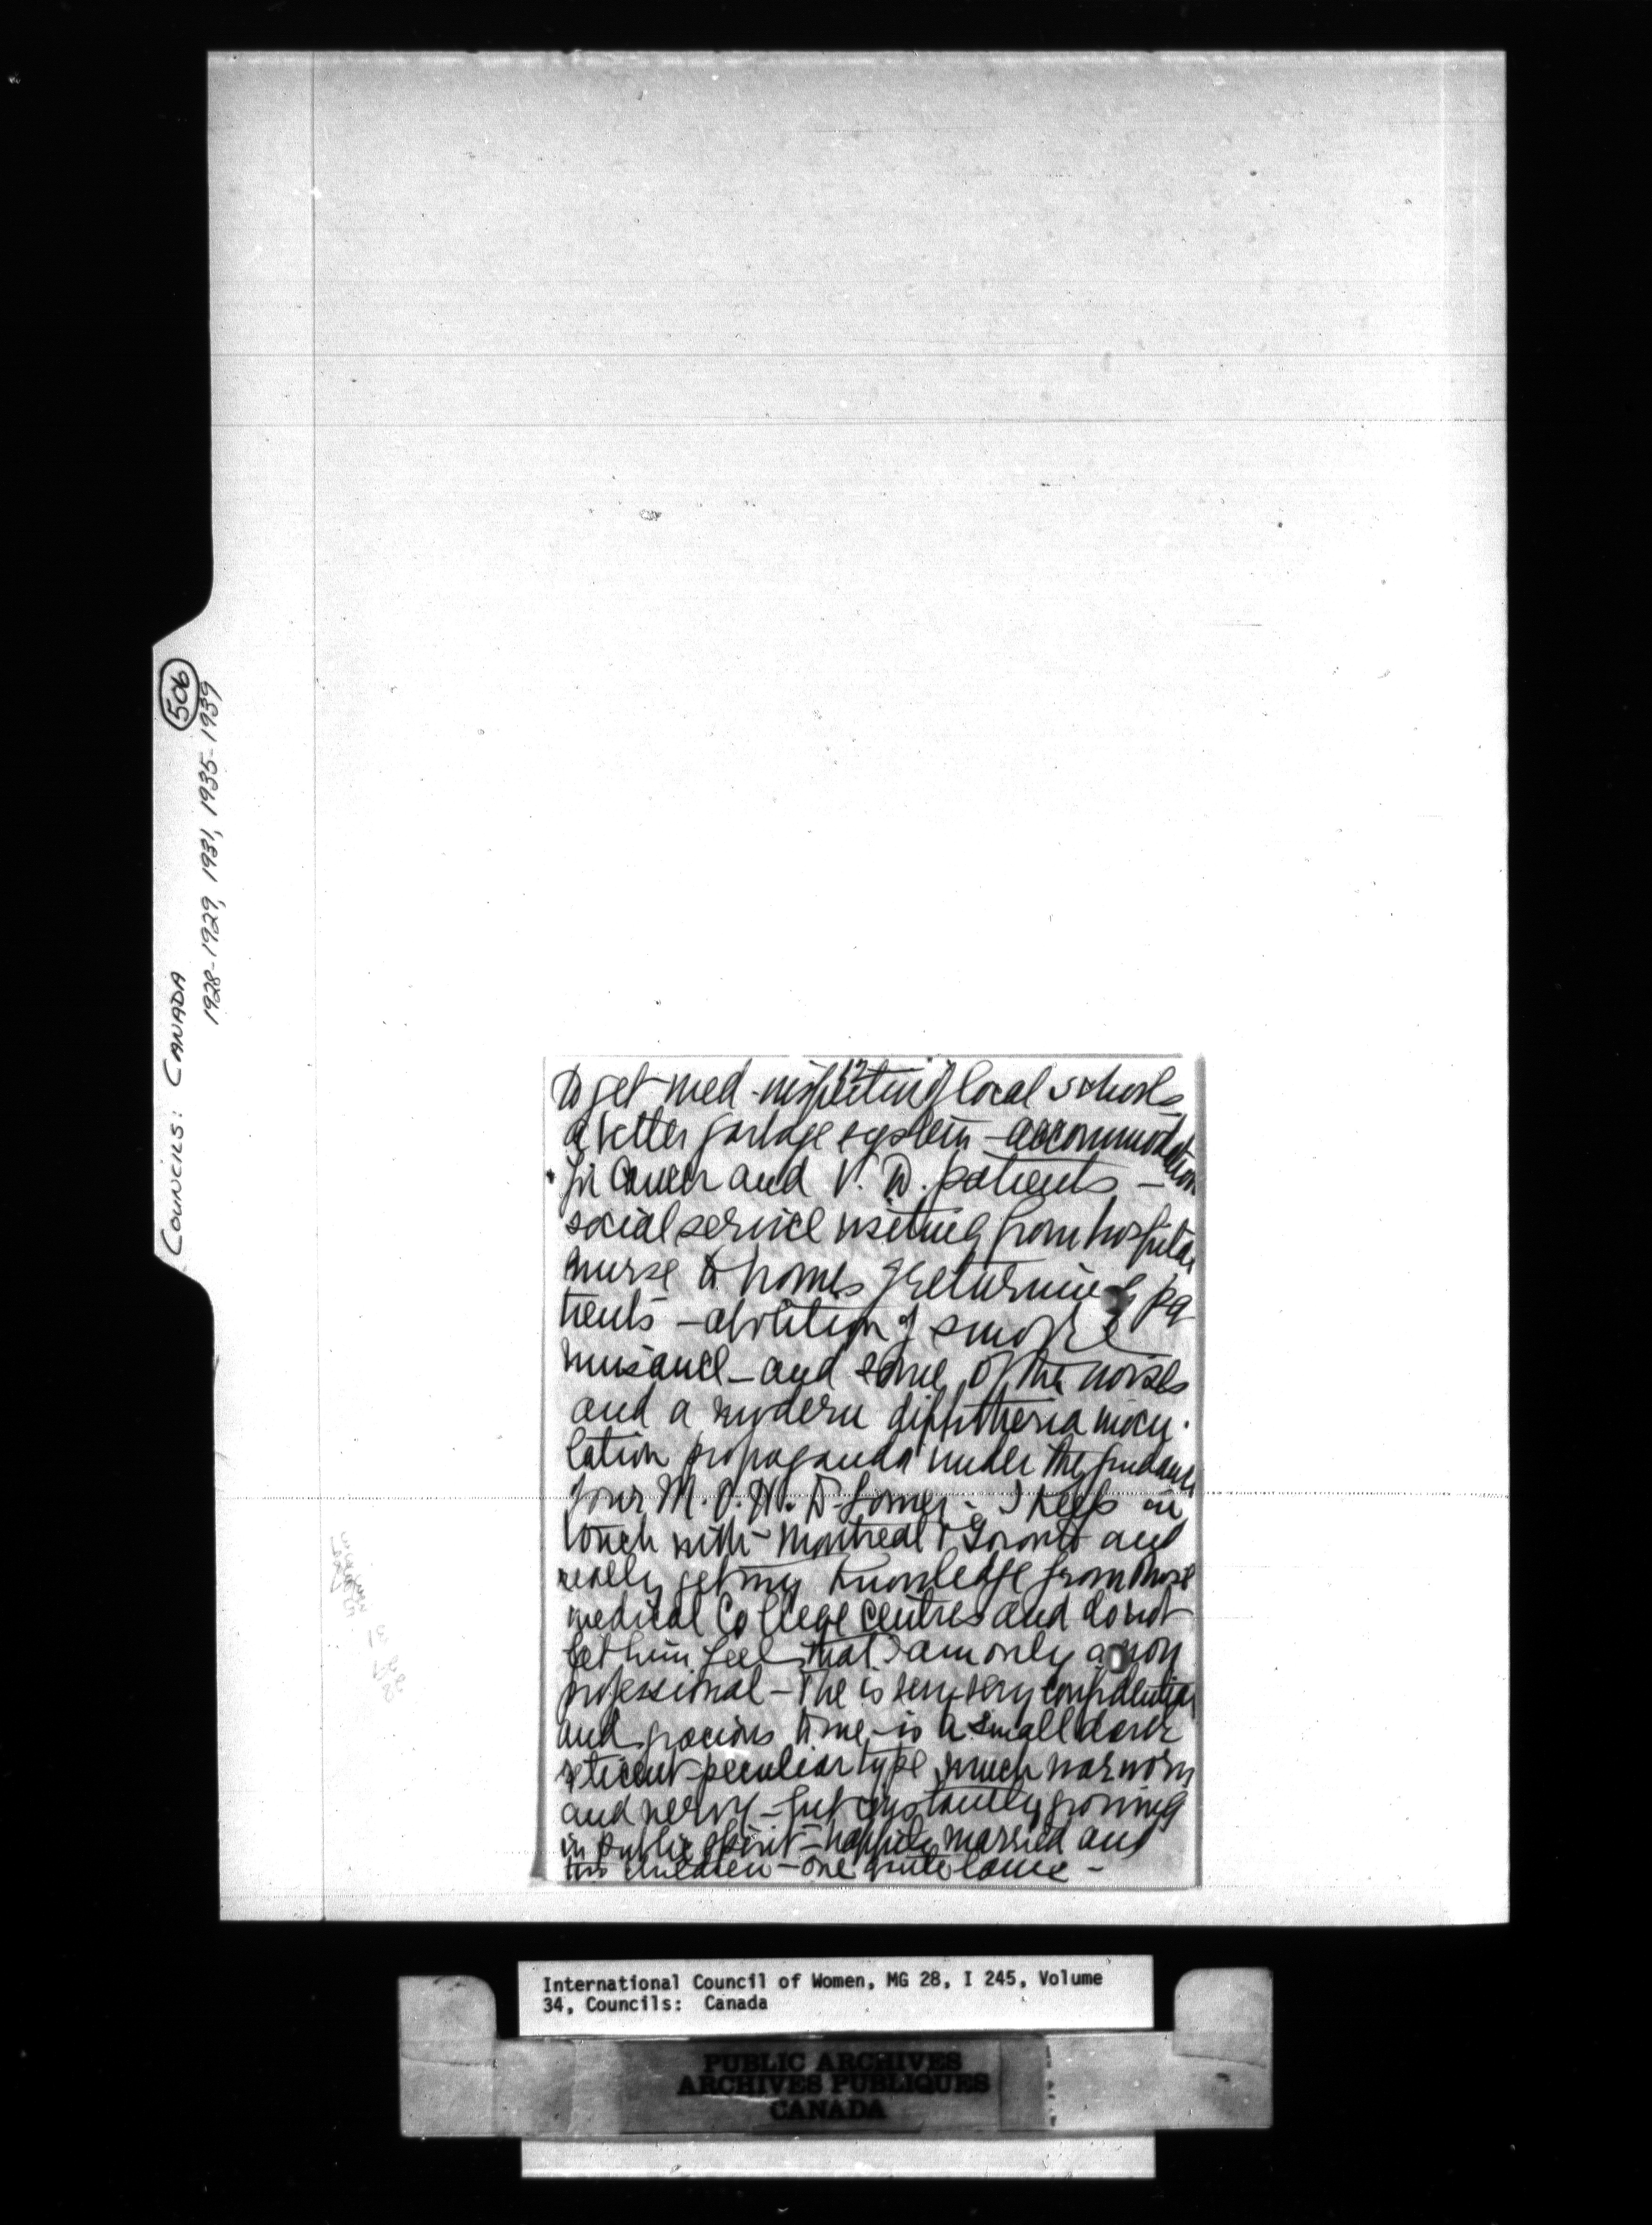 506
COUNCILS: CANADA
1928-1929, 1931, 1935-1939
12
to get med. inspection of local schools
a better garbage system - accommodation
for cancer and V. D. patients -
social service visiting from hospital
nurse to homes of returning pa
tients - abolition of smoke
nuisance - and some of the noises
and a modern diphtheria inocu-
lation propaganda under the guidance
of our M. O. H. Dr - I keep in
touch with Montreal & Toronto and
really get my knowledge from those
medical College centres and do not
let him feel that I am only a non
professional - He is very very confidential
and gracious to me - is a small dark
reticent peculiar type much war worn
and nervy - but constantly growing
in public spirit - happily married and
two children - one quite lame -
International Council of Women, MG 28, I 245, Volume
34, Councils: Canada
PUBLIC ARCHIVES
ARCHIVES PUBLIQUES
CANADA